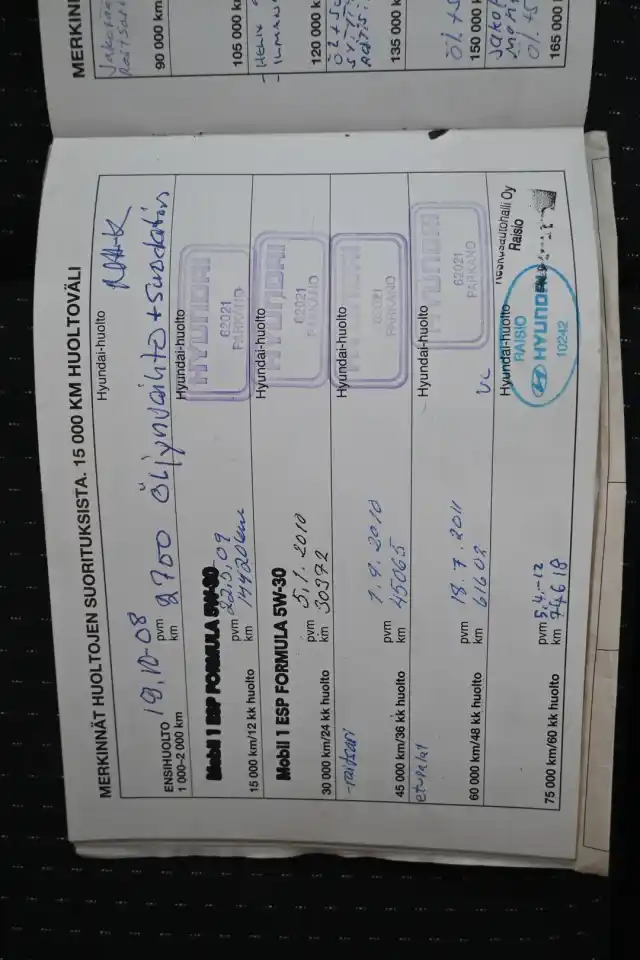 MERKINNÄT HUOLTOJEN SUORITUKSISTA. 15 000 KM HUOLTOVÄLI
ENSIHUOLTO 19,10-08
1 000–2 000 km
pvm
km 2700 Öljynvaihto + suodatin
Hyundai-huolto
Mobil 1 ESP FORMULA 5W-30
15 000 km/12 kk huolto
pvm 22,5,09
km 14420 km
Hyundai-huolto
HYUNDAI
62021
PARKANO
Mobil 1 ESP FORMULA 5W-30
30 000 km/24 kk huolto
pvm 5,1.2010
km 30372
Hyundai-huolto
HYUNDAI
62021
PARKANO
-raitisari
45 000 km/36 kk huolto
pvm 7.9.2010
km 45065
Hyundai-huolto
HYUNDAI
62021
PARKANO
etupalat
60 000 km/48 kk huolto
pvm 18.7.2011
km 61602
Hyundai-huolto
HYUNDAI
62021
PARKANO
75 000 km/60 kk huolto
pvm 5,4,-12
km 74618
Hyundai-huolto
RAISIO
HYUNDAI
10242
Raisio
MERKINN
90 000 km
105 000 k
120 000 k
135 000 k
150 000
165 000